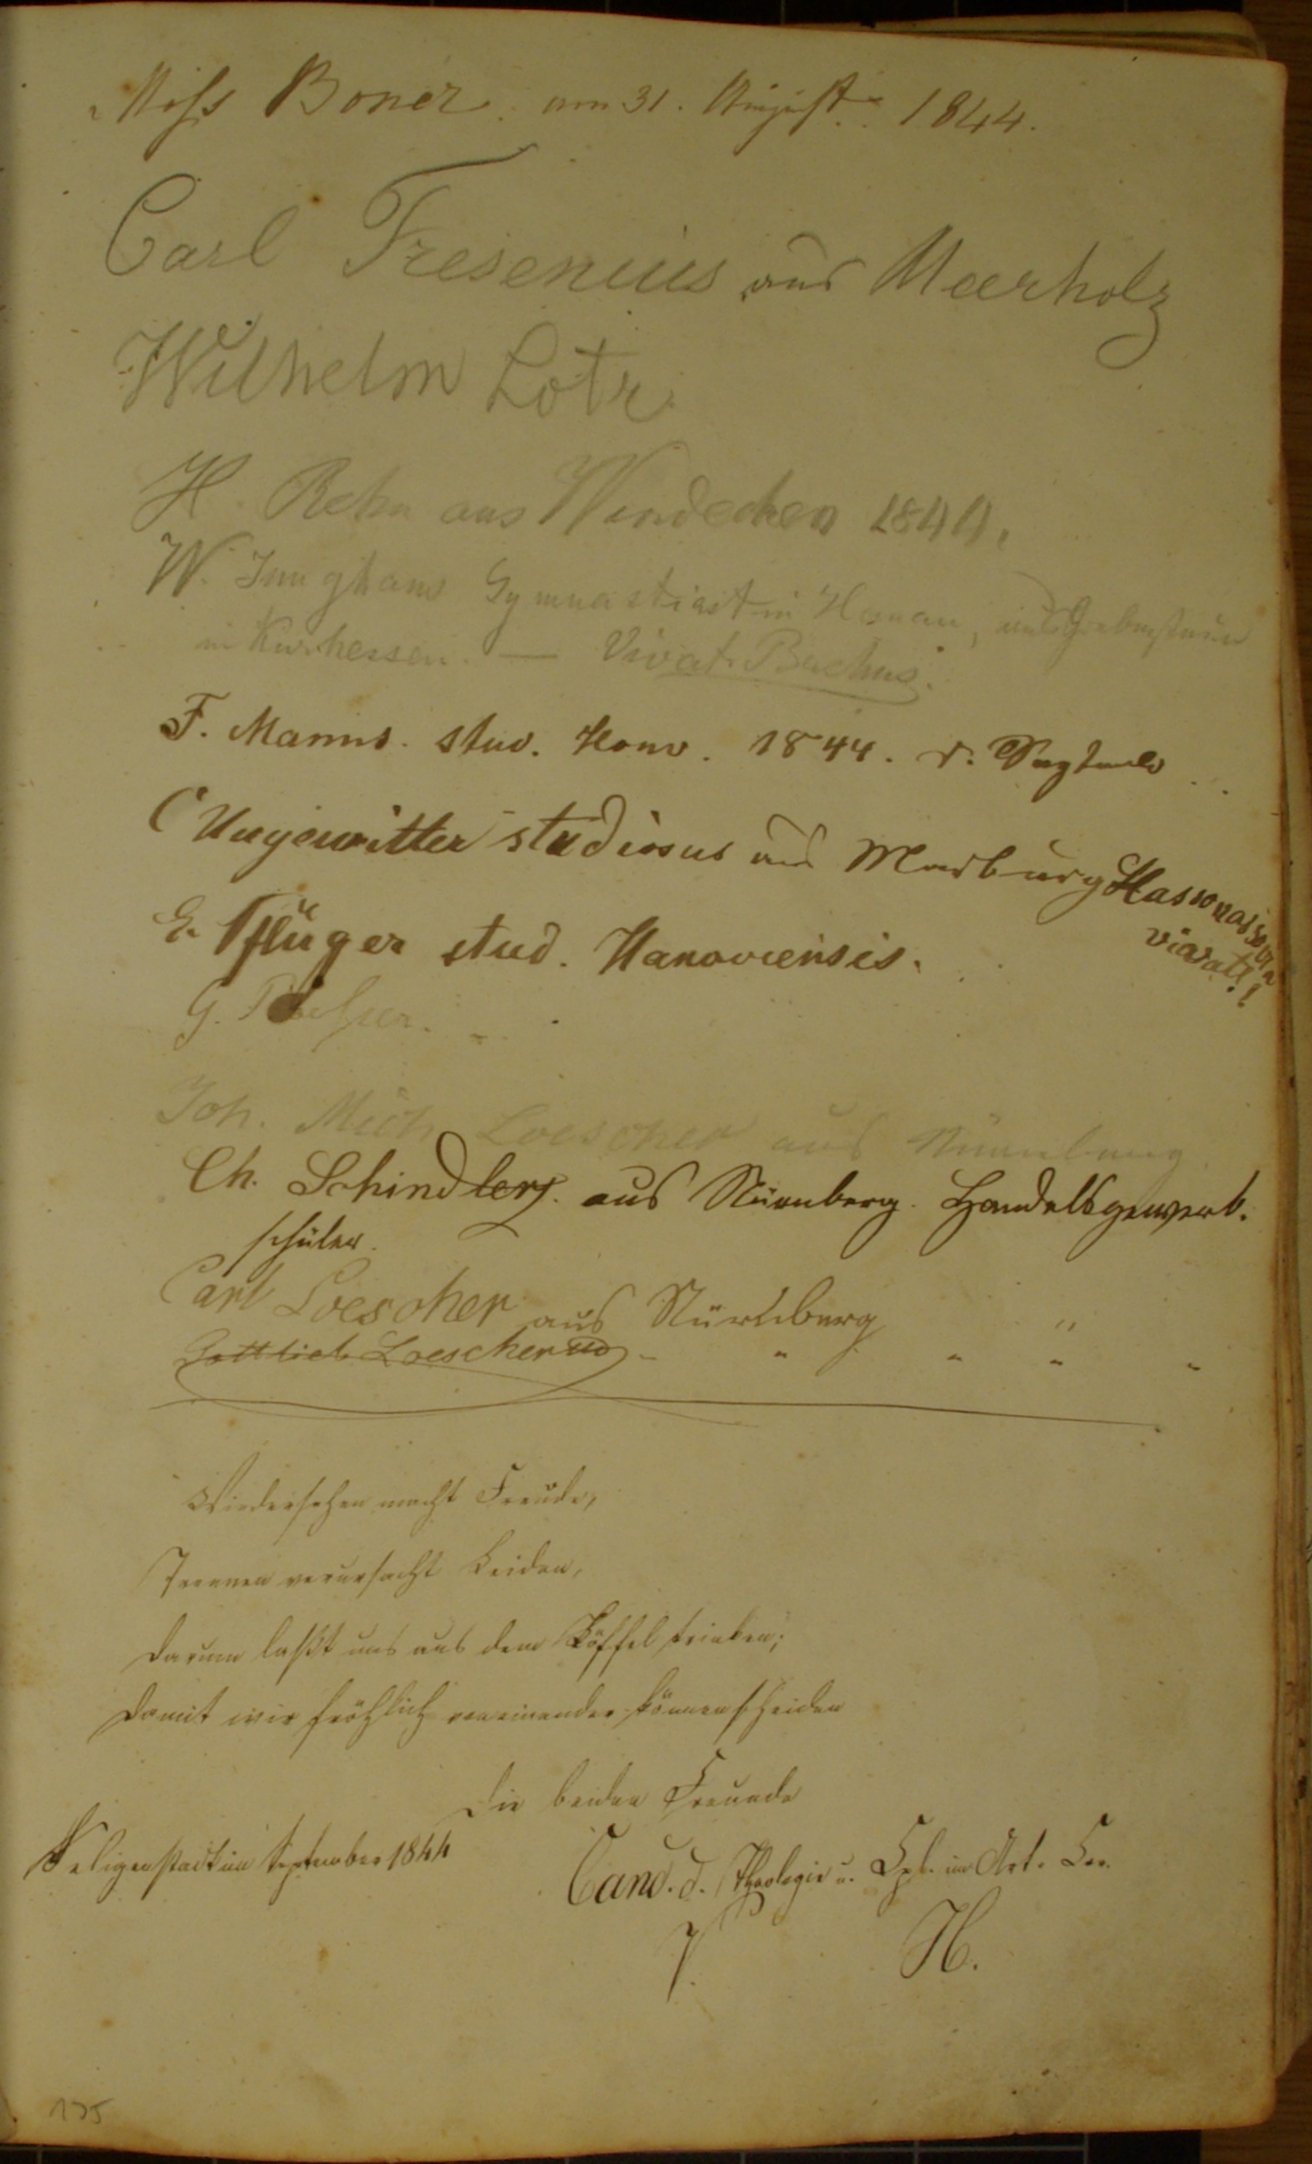 Miss Boner. am 31. August 1844.
Carl Fresenius aus Meerholz
Wilhelm Lotz
H. Rehn aus Windecken 1844.
W. Junghans Gymnasiast in Hanau, aus
in Kurhessen. — Vivat Bachus!
F. Manns. stud. Hanov. 1844. d. September
C Ungewitter studiosus aus Marburg Hasso
vivat!!
E. Pflüger stud. Hanoviensis.
G.
Joh. Mich. Loescher aus Nürnberg
Ch. Schindler. aus Nürnberg. Handelsgewerb.
schüler.
Carl Loescher aus Nürnberg "
Gottlieb Loescher " " " " "
Wiedersehen macht Freude,
Trennen verursacht Leiden,
Darum laßt uns aus dem Löffel trinken;
Damit wir fröhlich voneinander können scheiden
Die beiden Freunde
Seligenstadt im September 1844
Cand. d. Theologie u. im Art.
H.
175